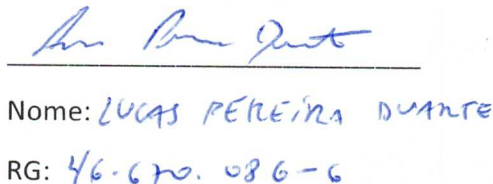 Nome: LUCAS PEREIRA DUARTE
RG: 46.670.086-6